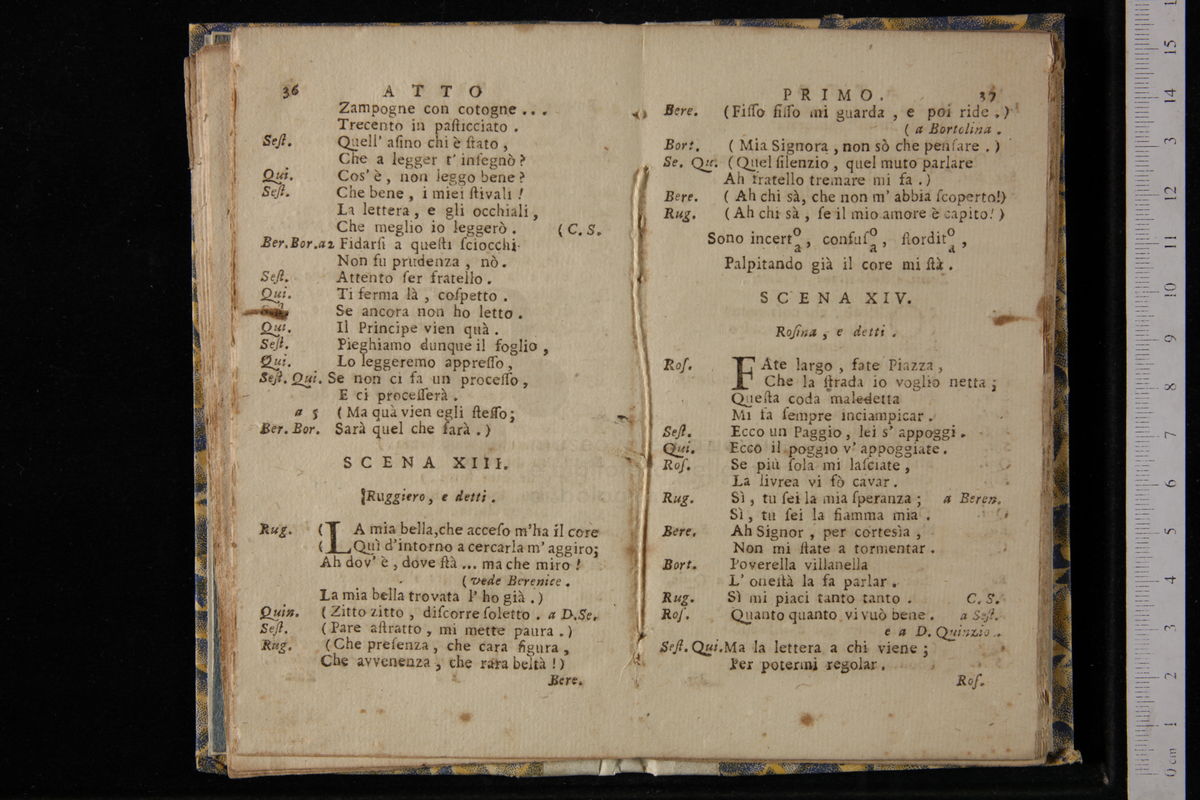 36 ATTO
Zampogne con cotogne ...
Trecento in paſticciato .
Seſt. Quell' aſino chi è ſtato ,
Che a legger t' inſegnò ?
Qui. Cos' è , non leggo bene ?
Seſt. Che bene , i miei ſtivali !
La lettera , e gli occhiali ,
Che meglio io leggerò . ( C. S.
Ber.Bor.a2 Fidarſi a queſti ſciocchi
Non fu prudenza , nò .
Seſt. Attento ſer fratello .
Qui. Ti ferma là , coſpetto .
Se ancora non ho letto .
Qui. Il Principe vien quà .
Seſt. Pieghiamo dunque il foglio ,
Qui. Lo leggeremo appreſſo ,
Seſt. Qui. Se non ci fa un proceſſo ,
E ci proceſſerà .
a 5 ( Ma quà vien egli ſteſſo ;
Ber. Bor. Sarà quel che ſarà . )
SCENA XIII.
Ruggiero , e detti .
Rug. ( LA mia bella, che acceſo m'ha il core
( Quì d'intorno a cercarla m' aggiro;
Ah dov' è , dove ſtà ... ma che miro !
( vede Berenice .
La mia bella trovata l' ho già . )
Quin. ( Zitto zitto , diſcorre ſoletto . a D.Se.
Seſt. ( Pare aſtratto , mi mette paura . )
Rug. ( Che preſenza , che cara figura ,
Che avvenenza , che rara beltà ! )
Bere.
PRIMO. 37
Bere. (Fiſſo fiſſo mi guarda , e poi ride . )
( a Bortolina .
Bort. ( Mia Signora , non sò che penſare . )
Se. Qu. (Quel ſilenzio , quel muto parlare
Ah fratello tremare mi fa . )
Bere. ( Ah chi sà, che non m' abbia ſcoperto!)
Rug. ( Ah chi sà , ſe il mio amore è capito! )
Sono incert o/a , confuſ o/a , ſtordit o/a ,
Palpitando già il core mi ſtà .
SCENA XIV.
Roſina , e detti .
Roſ. FAte largo , fate Piazza ,
Che la ſtrada io voglio netta ;
Queſta coda maledetta
Mi fa ſempre inciampicar .
Seſt. Ecco un Paggio , lei s' appoggi .
Qui. Ecco il poggio v' appoggiate .
Roſ. Se più ſola mi laſciate ,
La livrea vi fò cavar .
Rug. Sì , tu ſei la mia ſperanza ; a Beren.
Sì , tu ſei la fiamma mia .
Bere. Ah Signor , per cortesìa ,
Non mi ſtate a tormentar .
Bort. Poverella villanella
L' oneſtà la fa parlar .
Rug. Sì mi piaci tanto tanto . C. S.
Roſ. Quanto quanto vi vuò bene . a Seſt.
e a D. Quinzio .
Seſt. Qui. Ma la lettera a chi viene ;
Per potermi regolar .
Roſ.
0 cm 1 2 3 4 5 6 7 8 9 10 11 12 13 14 15